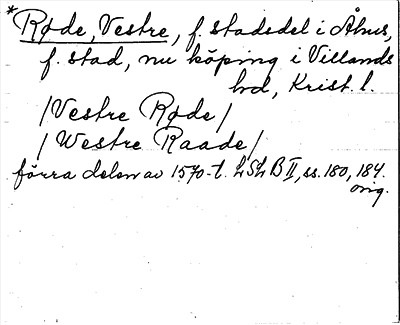 * Røde, Vestre, f. stadsdel i Åhus,
f. stad, nu köping i Villands
hd, Krist. l.
/Vestre Røde/
/Westre Raade/
förra delen av 1570-t. LSL B II, ss. 180, 184.
orig.